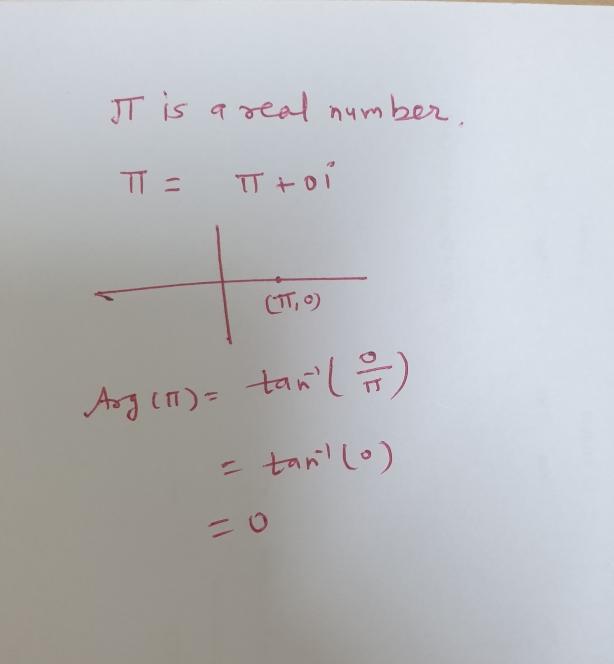 π is a real number.
π = π + 0i
(π, 0)
Arg (π) = tan⁻¹ (0/π)
= tan⁻¹ (0)
= 0